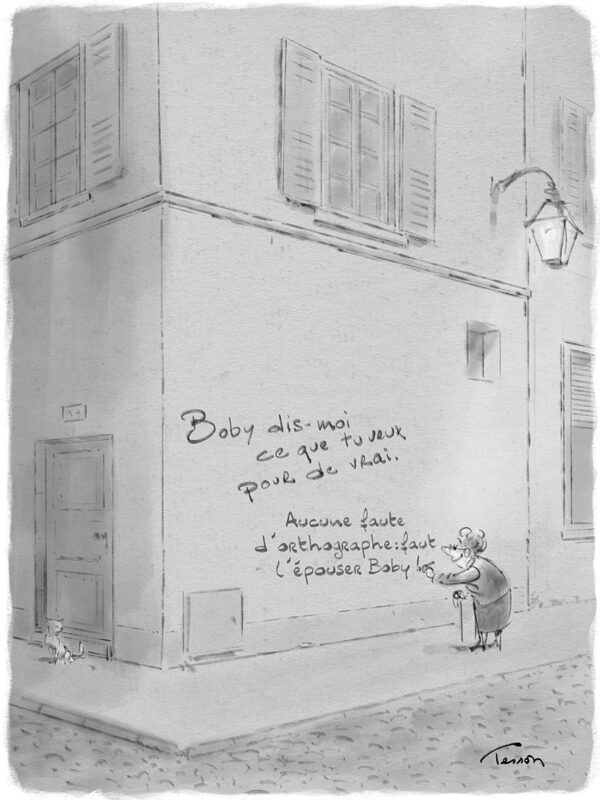 Boby dis-moi
ce que tu veux
pour de vrai.
Aucune faute
d'orthographe: faut
l'épouser Boby !
Tesson